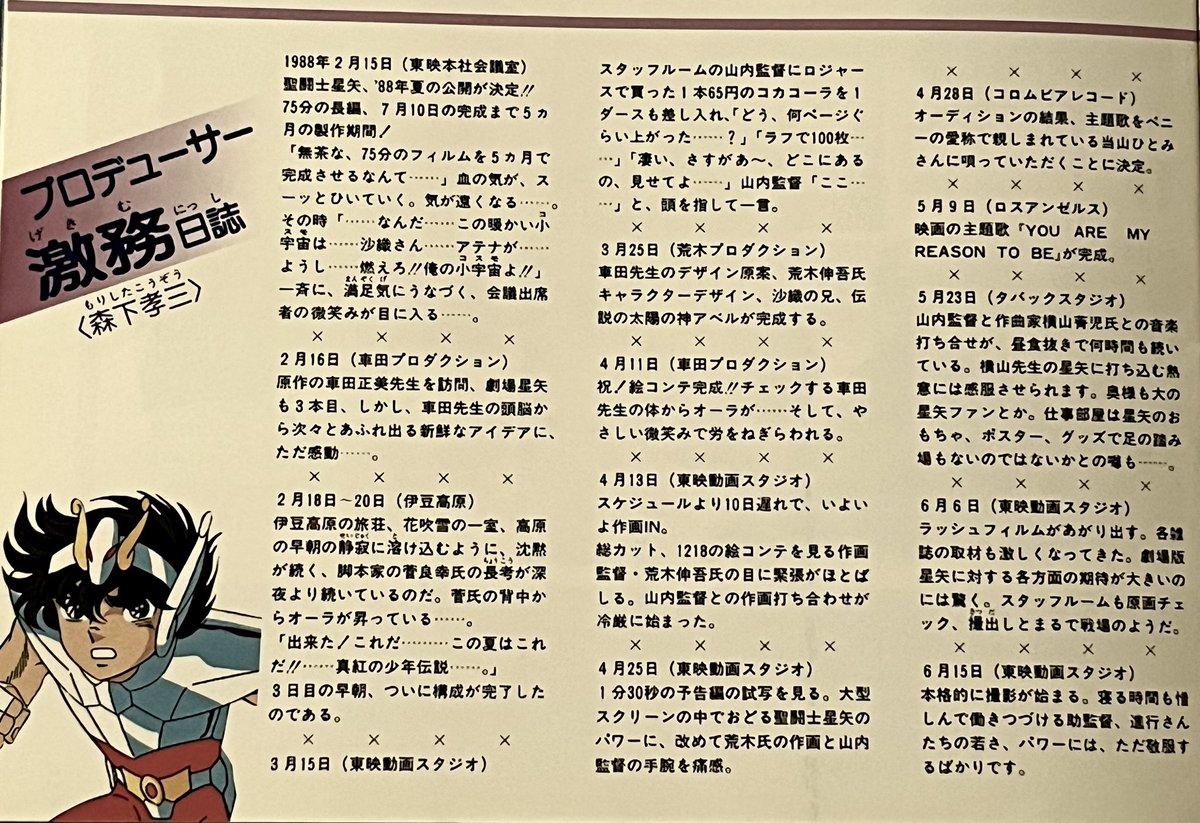 プロデューサー
激務日誌
げきむにっし
〈森下孝三〉
もりしたこうぞう
1988年2月15日（東映本社会議室）
聖闘士星矢、'88年夏の公開が決定!!
75分の長編、7月10日の完成まで5ヵ
月の製作期間！
「無茶な、75分のフィルムを5ヵ月で
完成させるなんて……」血の気が、ス
ーッとひいていく。気が遠くなる……。
その時「……なんだ……この暖かい小
宇宙は……沙織さん……アテナが……
コスモ
ようし……燃えろ!!俺の小宇宙よ!!」
コスモ
一斉に、満足気にうなづく、会議出席
まんぞくげ
者の微笑みが目に入る……。
× × × ×
2月16日（車田プロダクション）
原作の車田正美先生を訪問、劇場星矢
も3本目、しかし、車田先生の頭脳か
ら次々とあふれ出る新鮮なアイデアに、
ただ感動……。
× × × ×
2月18日〜20日（伊豆高原）
伊豆高原の旅荘、花吹雪の一室、高原
の早朝の静寂に溶け込むように、沈黙
せいじゃく と
が続く、脚本家の菅良幸氏の長考が深
ちょうこう
夜より続いているのだ。菅氏の背中か
らオーラが昇っている……。
「出来た！これだ………この夏はこれ
だ!!……真紅の少年伝説……。」
3日目の早朝、ついに構成が完了した
のである。
× × × ×
3月15日（東映動画スタジオ）
スタッフルームの山内監督にロジャー
スで買った1本65円のコカコーラを1
ダースも差し入れ、「どう、何ページぐ
らい上がった……？」「ラフで100枚…
…」「凄い、さすがあ〜、どこにある
の、見せてよ……」山内監督「ここ…
…」と、頭を指して一言。
× × × ×
3月25日（荒木プロダクション）
車田先生のデザイン原案、荒木伸吾氏
キャラクターデザイン、沙織の兄、伝
説の太陽の神アベルが完成する。
× × × ×
4月11日（車田プロダクション）
祝！絵コンテ完成!!チェックする車田
先生の体からオーラが……そして、や
さしい微笑みで労をねぎらわれる。
× × × ×
4月13日（東映動画スタジオ）
スケジュールより10日遅れで、いよい
よ作画IN。
総カット、1218の絵コンテを見る作画
監督・荒木伸吾氏の目に緊張がほとば
しる。山内監督との作画打ち合わせが
冷厳に始まった。
× × × ×
4月25日（東映動画スタジオ）
1分30秒の予告編の試写を見る。大型
スクリーンの中でおどる聖闘士星矢の
パワーに、改めて荒木氏の作画と山内
監督の手腕を痛感。
× × × ×
4月28日（コロムビアレコード）
オーディションの結果、主題歌をペニ
ーの愛称で親しまれている当山ひとみ
さんに唄っていただくことに決定。
× × × ×
5月9日（ロスアンゼルス）
映画の主題歌『YOU ARE MY
REASON TO BE』が完成。
× × × ×
5月23日（タバックスタジオ）
山内監督と作曲家横山菁児氏との音楽
打ち合せが、昼食抜きで何時間も続い
ている。横山先生の星矢に打ち込む熱
意には感服させられます。奥様も大の
星矢ファンとか。仕事部屋は星矢のお
もちゃ、ポスター、グッズで足の踏み
場もないのではないかとの噂も……。
× × × ×
6月6日（東映動画スタジオ）
ラッシュフィルムがあがり出す。各雑
誌の取材も激しくなってきた。劇場版
星矢に対する各方面の期待が大きいの
には驚く。スタッフルームも原画チェ
ック、撮出しとまるで戦場のようだ。
さつだ
× × × ×
6月15日（東映動画スタジオ）
本格的に撮影が始まる。寝る時間も惜
しんで働きつづける助監督、進行さん
たちの若さ、パワーには、ただ敬服す
るばかりです。